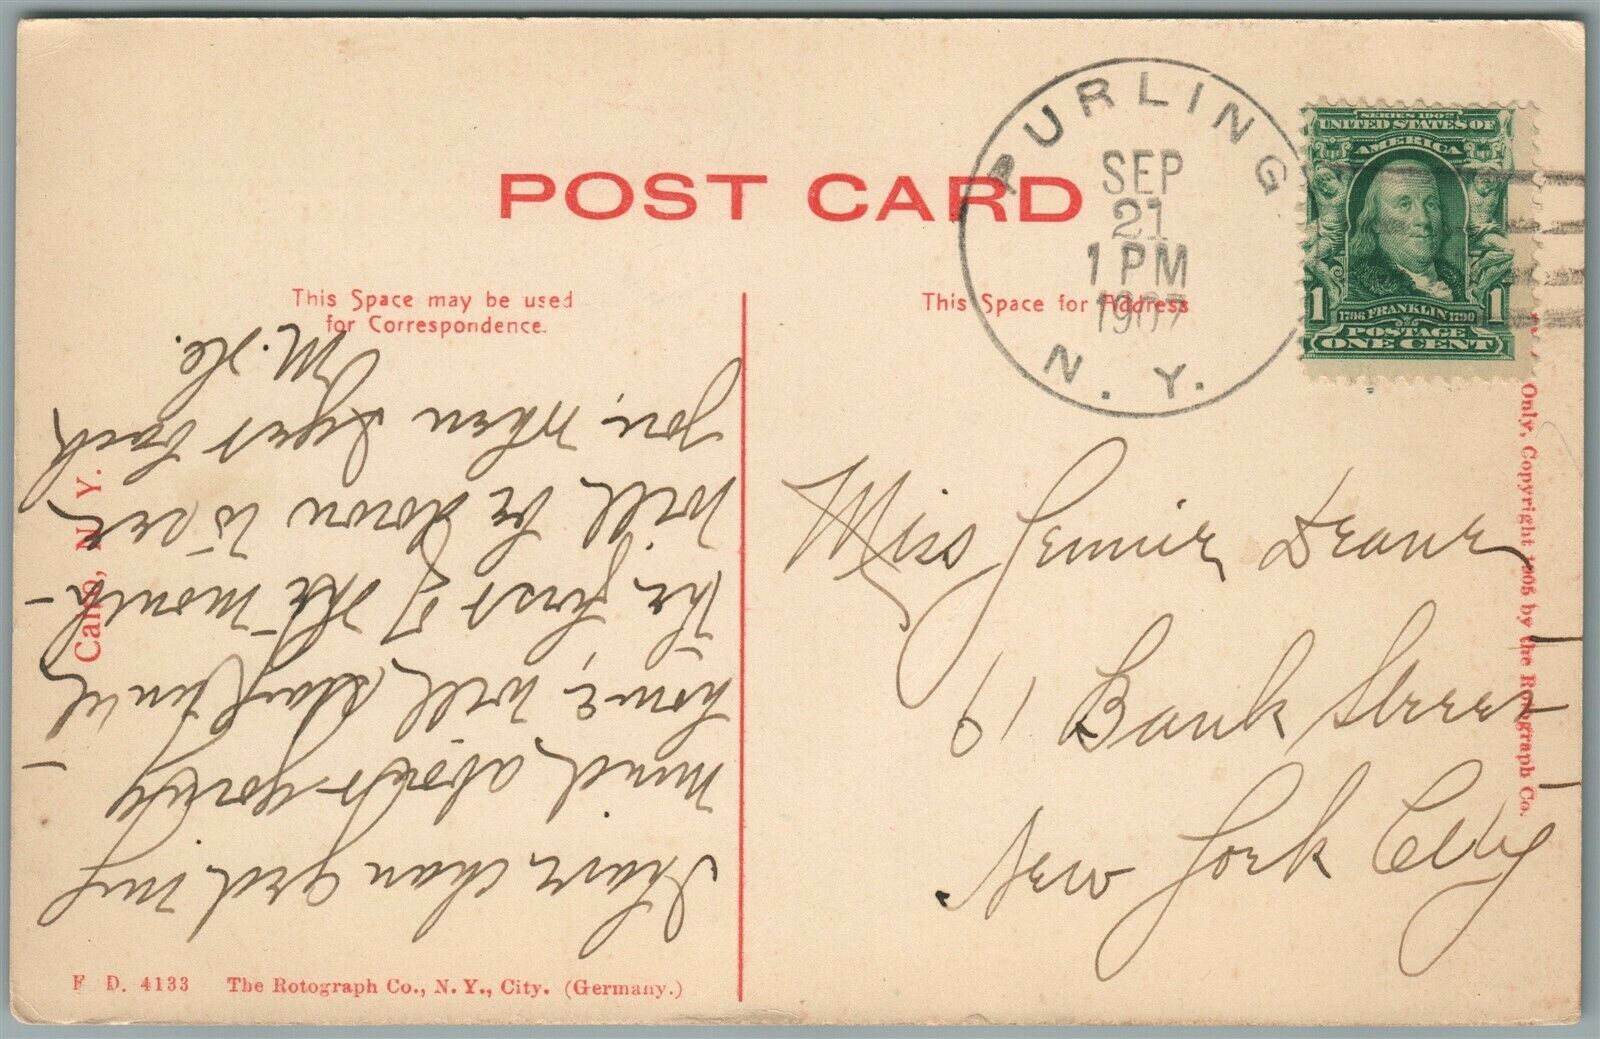 POST CARD
This Space may be used
for Correspondence.
This Space for Address
PURLING
SEP
21
1 PM
1907
N. Y.
SERIES 1902
UNITED STATES OF
AMERICA
1 1706 FRANKLIN 1790 1
POSTAGE
ONE CENT
I have changed my
mind, about going
home, will stay until
the first of the month -
Will be down to see
you, when I get back
M. Le.
Miss Jennie Deane
61 Bank Street
New York City
Cairo, N. Y.
Only, Copyright 1905 by the Rotograph Co.
F D. 4133 The Rotograph Co., N. Y., City. (Germany.)